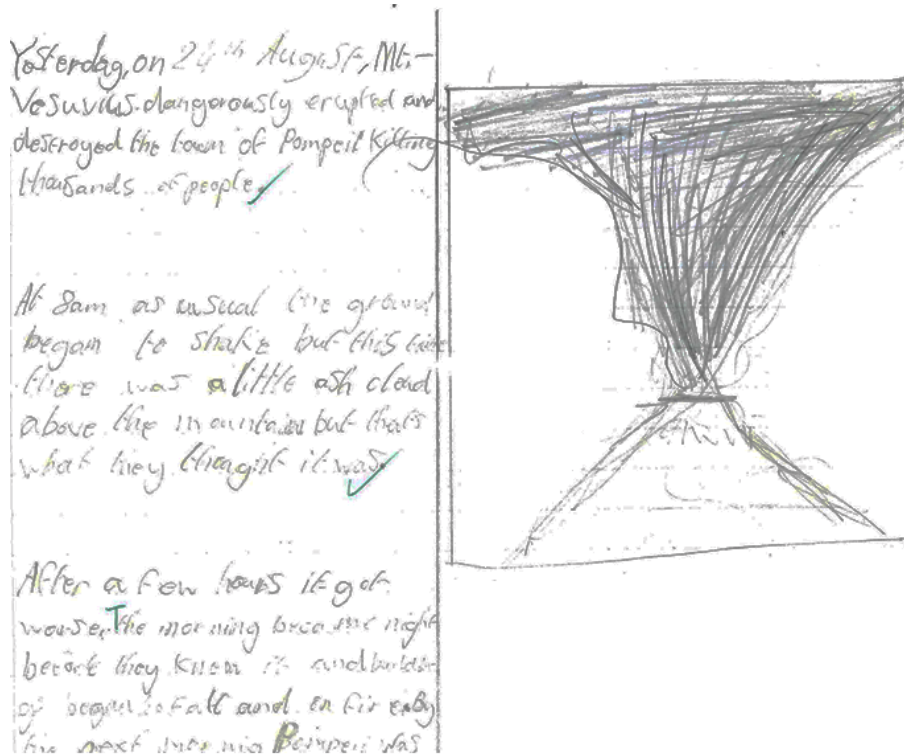 Yesterday, on 24th August, Mt.-
Vesuvius dangorously erupted and
destroyed the town of Pompeii Killing
thousands of people.
At 8am as usual the ground
began to shake but this time
there was a little ash cloud
above the mountain but thats
what they thought it was.
After a few hours it got
worse. The morning became night
before they knew it and
began to fall and on fire. By
the next morning Pompeii was